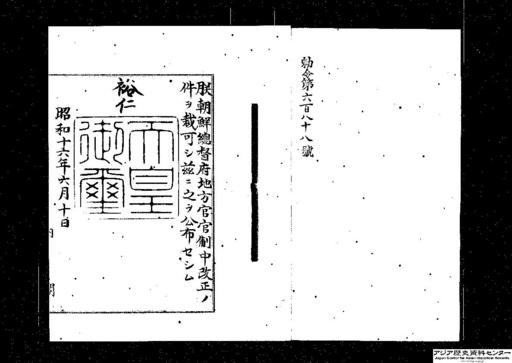 勅令第六百八十八號
朕朝鮮總督府地方官官制中改正ノ
件ヲ裁可シ茲ニ之ヲ公布セシム
裕仁
天皇
御璽
昭和十六年六月十日
内
閣
アジア歴史資料センター
Japan Center for Asian Historical Records